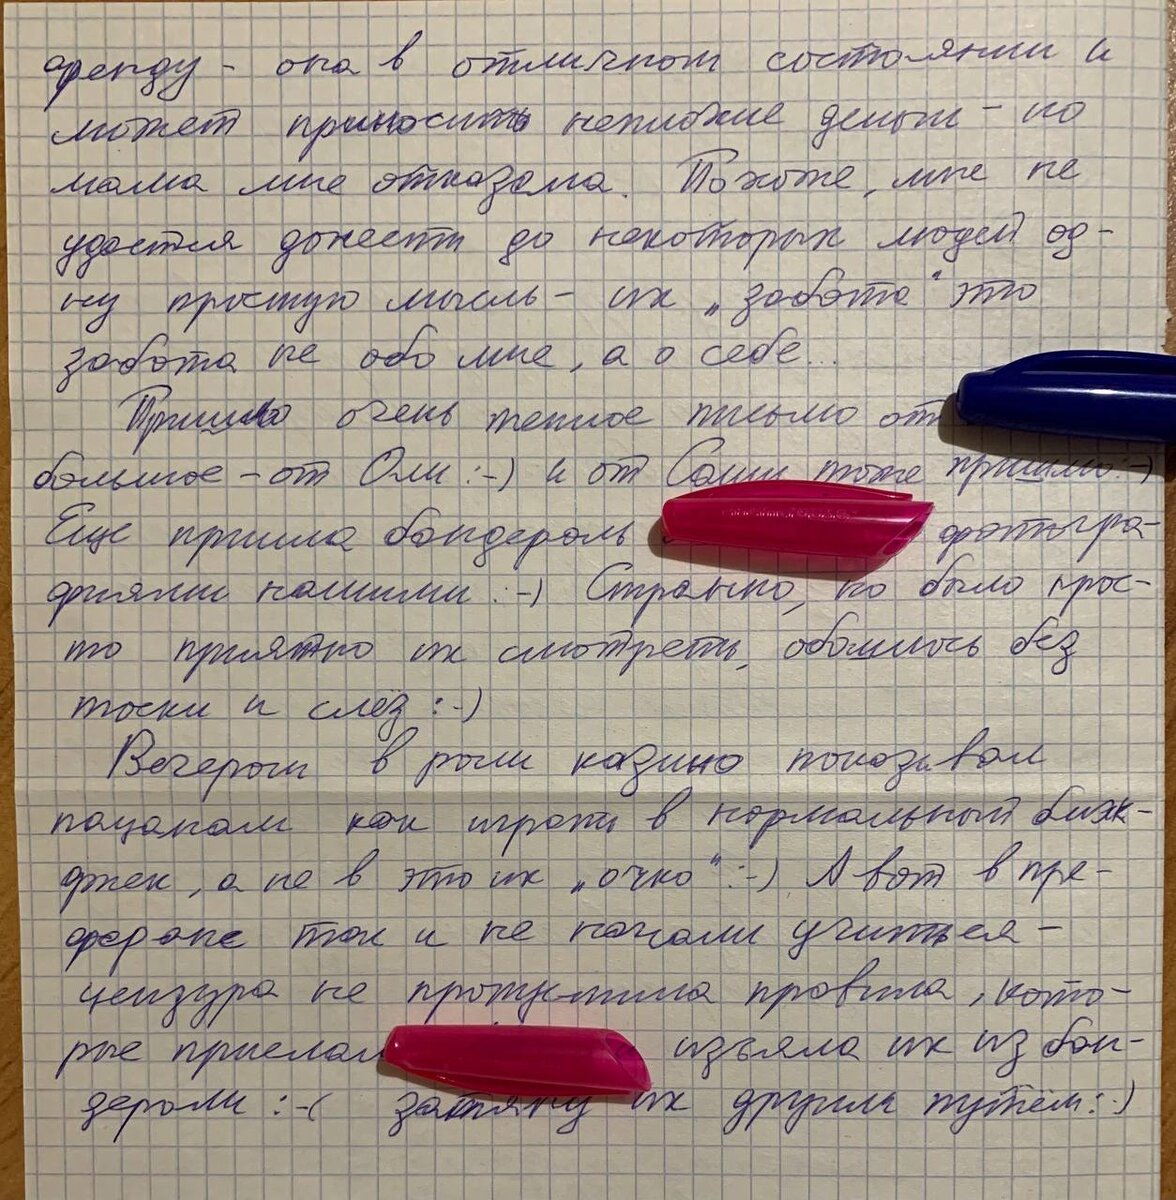 аренду - она в отличном состоянии и
может приносить неплохие деньги - но
мама мне отказала. Похоже, мне не
удастся донести до некоторых людей од-
ну простую мысль - их „забота" это
забота не обо мне, а о себе...
Пришло очень теплое письмо от
большое - от Оли :-) и от Саши тоже пришло :-)
Еще пришла бандероль фотогра-
фиями нашими :-) Странно, но было прос-
то приятно их смотреть, обошлось без
тоски и слез :-)
Вечером в роли казино показывал
пацанам как играть в нормальный блэк-
джек, а не в это их „очко" :-) А вот в пре-
феранс так и не начали учиться -
цензура не пропустила правила, кото-
рые прислал изъяла их из бан-
дероли :-( затяну их другим путём :-)